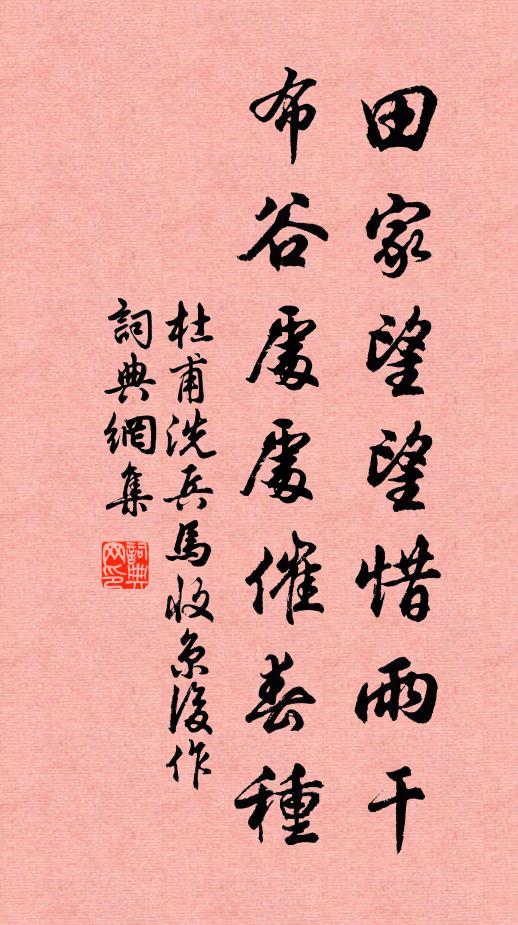 田家望望惜雨干
布谷處處催春種
杜甫洗兵馬收京後作
詞典網集
詞典网印